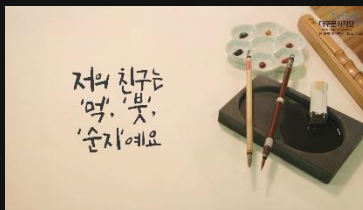 저의 친구는
'먹', '붓',
'순지'예요
대구문화재단